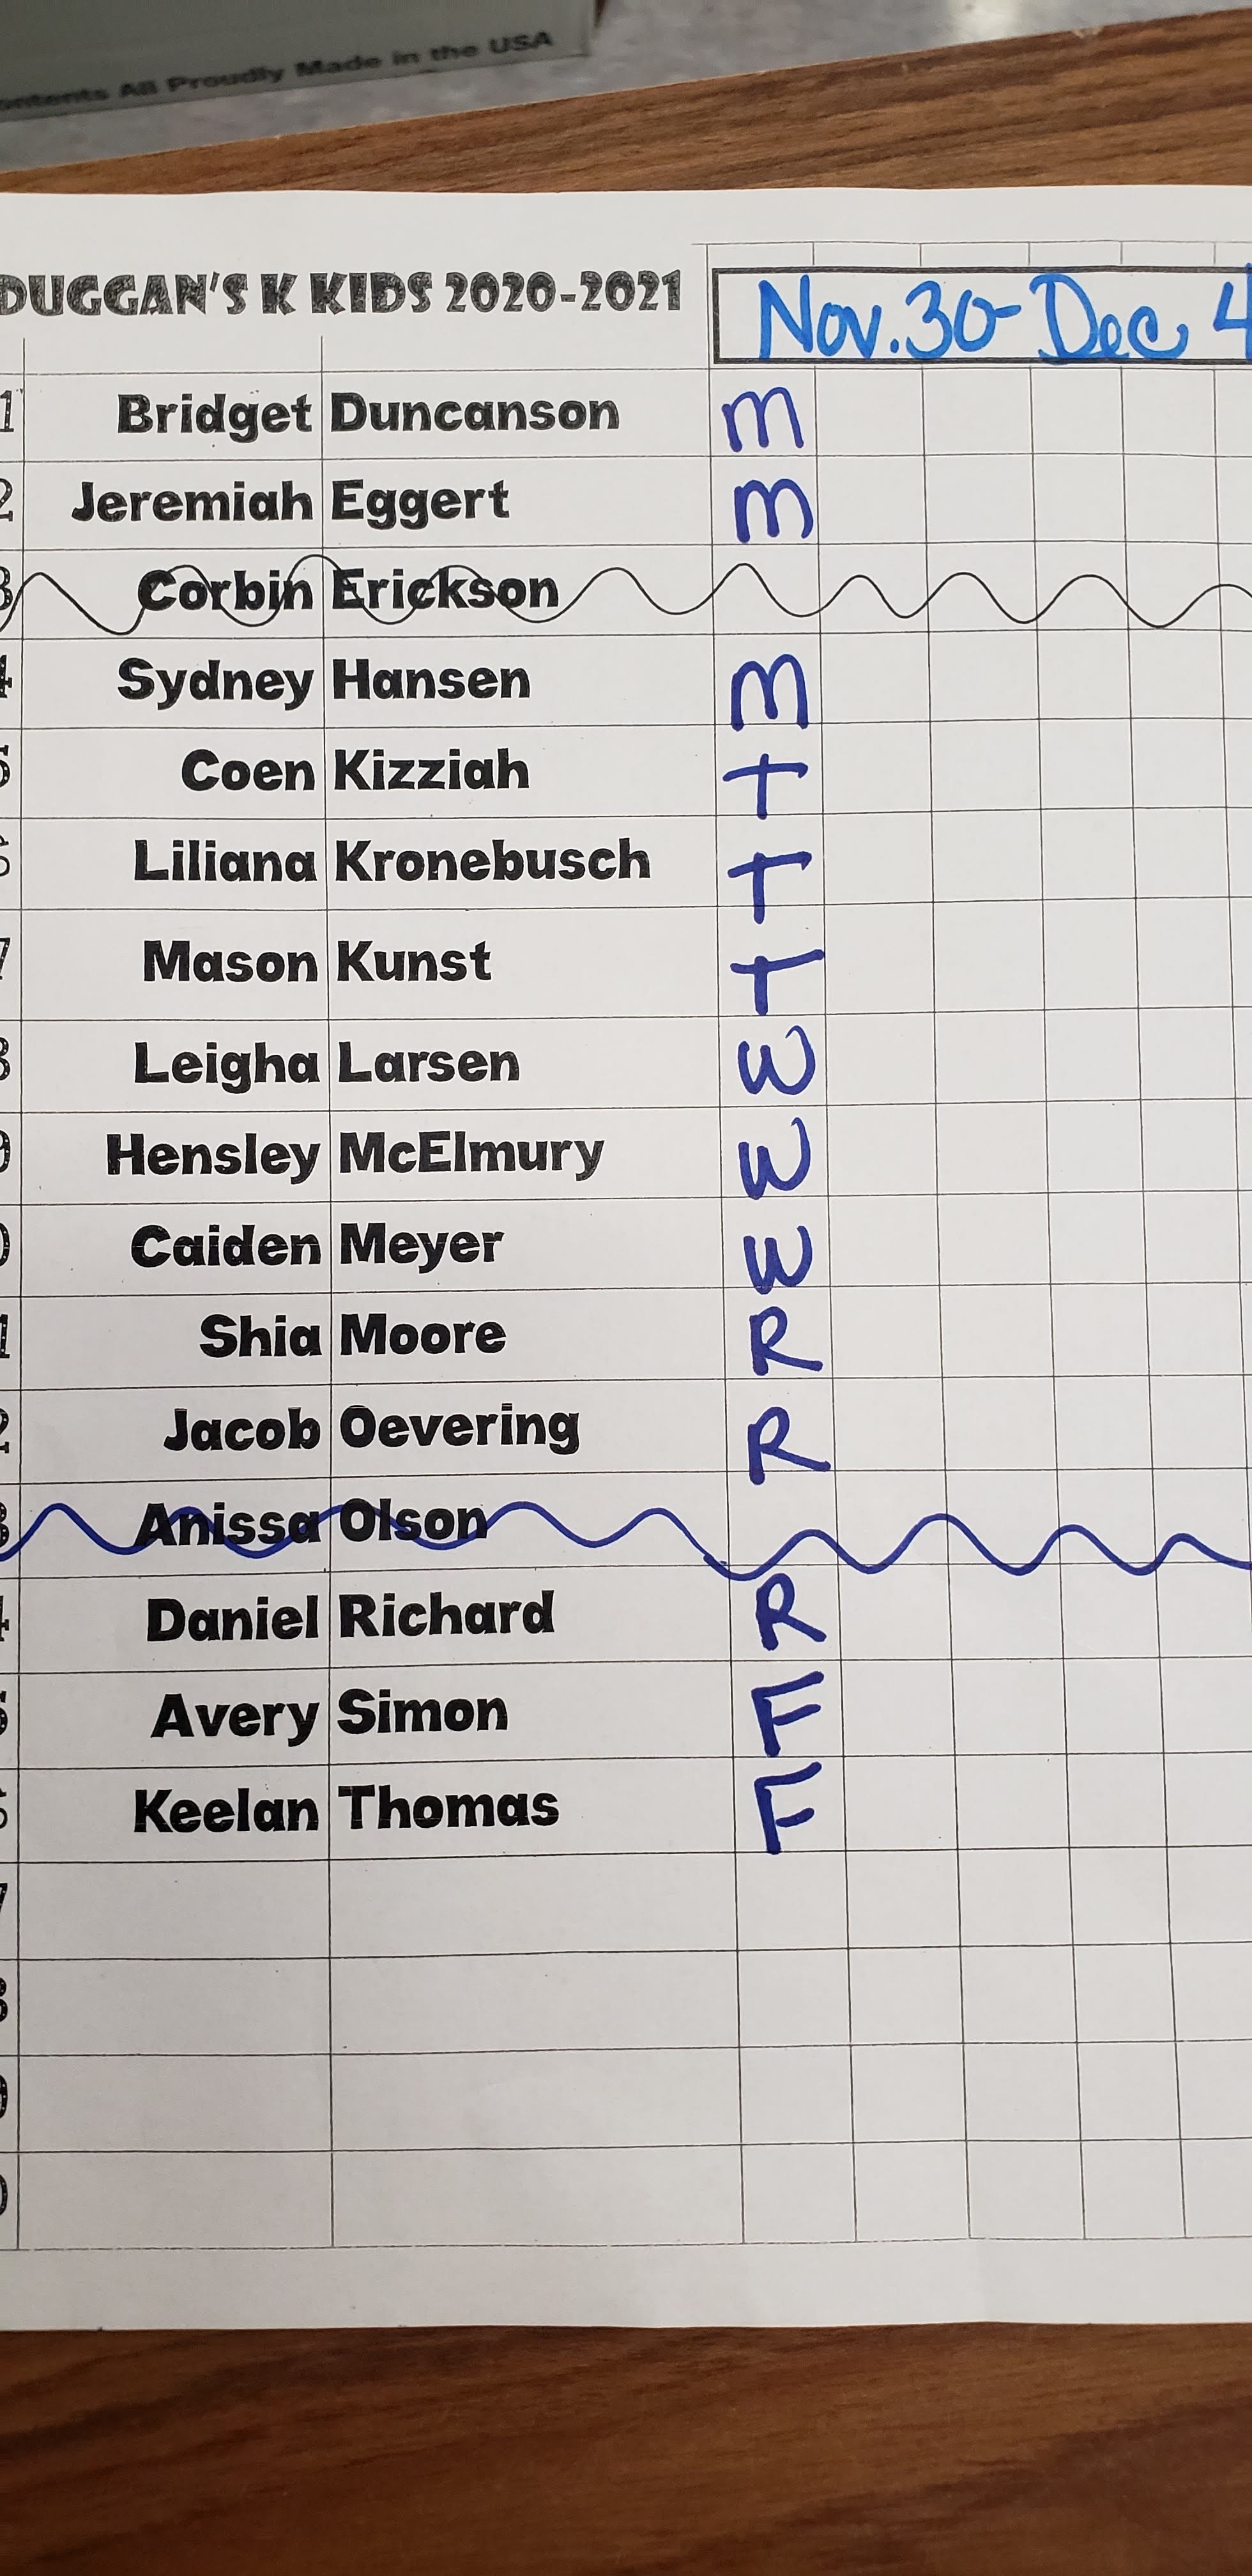 Contents All Proudly Made in the USA
DUGGAN'S K KIDS 2020-2021 Nov. 30- Dec 4
1 Bridget Duncanson M
2 Jeremiah Eggert M
3 Corbin Erickson
4 Sydney Hansen M
5 Coen Kizziah T
6 Liliana Kronebusch T
7 Mason Kunst T
8 Leigha Larsen W
9 Hensley McElmury W
0 Caiden Meyer W
1 Shia Moore R
2 Jacob Oevering R
3 Anissa Olson
4 Daniel Richard R
5 Avery Simon F
6 Keelan Thomas F
7
8
9
0